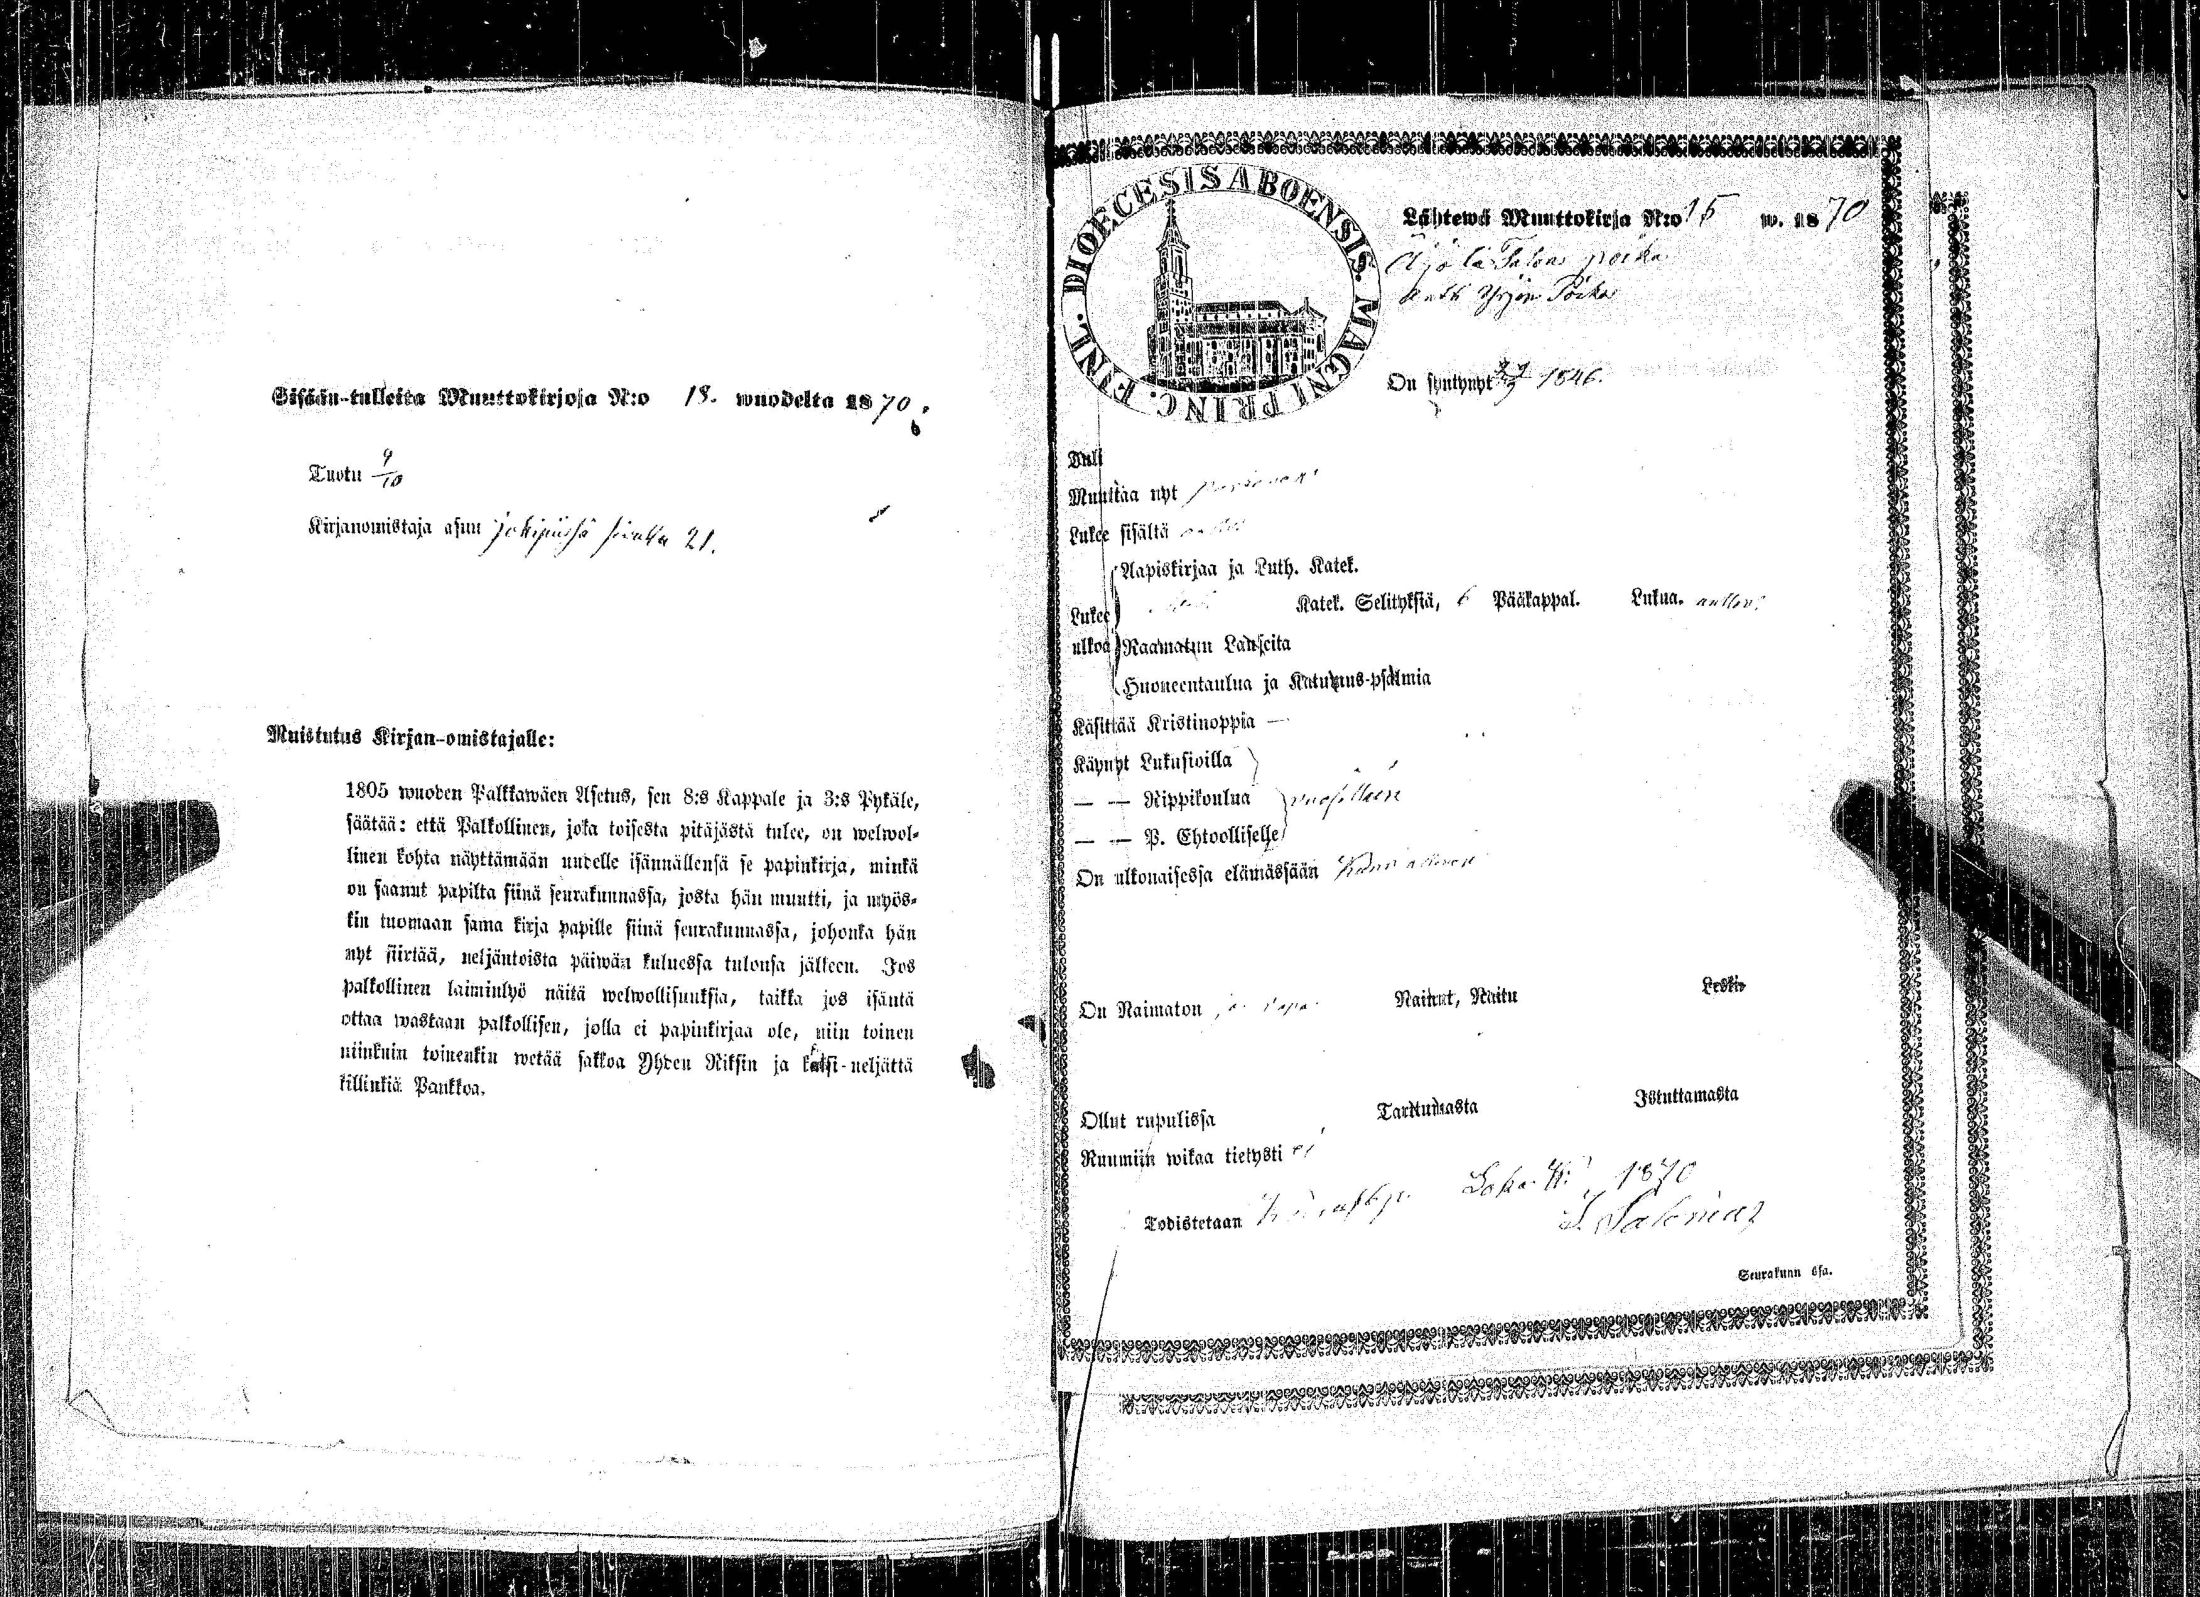 Sisään-tulleita Muuttokirjoja N:o 18. wuodelta 1870.
Tuotu 9/10
Kirjanomistaja asuu Jokipiisä siwulla 21.
Muistutus Kirjan-omistajalle:
1805 wuoden Palkkawäen Asetus, sen 8:s Kappale ja 3:s Pykäle,
säätää: että Palkollinen, joka toisesta pitäjästä tulee, on welwol-
linen kohta näyttämään uudelle isännällensä se papinkirja, minkä
on saanut papilta siinä seurakunnassa, josta hän muutti, ja myös-
kin tuomaan sama kirja papille siinä seurakunnassa, johonka hän
nyt siirtää, neljäntoista päiwän kuluessa tulonsa jälkeen. Jos
palkollinen laiminlyö näitä welwollisuuksia, taikka jos isäntä
ottaa wastaan palkollisen, jolla ei papinkirjaa ole, niin toinen
niinkuin toinenkin wetää sakkoa Yhden Riksin ja kaksi-neljättä
killinkiä Pankkoa.
DIOECESIS ABOENSIS. MAGNI PRINC. FINL.
Lähtewä Muuttokirja N:o 15 w. 1870
Talon poika
Antti Yrjön Poika
On syntynyt 1846.
Tuli
Muuttaa nyt
Lukee sisältä
Aapiskirjaa ja Luth. Katek.
Lukee Katek. Selityksiä, 6 Pääkappal. Lukua.
ulkoa Raamatun Lauseita
Huoneentaulua ja Katumus-psalmia
Käsittää Kristinoppia —
Käynyt Lukusioilla
— — Rippikoulua
— — P. Ehtoolliselle
On ulkonaisessa elämässään
On Naimaton ja wapa Nainut, Naitu Leski
Ollut rupulissa Tarttumasta Istuttamasta
Ruumiin wikaa tietysti ei
Todistetaan Loka 1870
Seurakunn ssa.